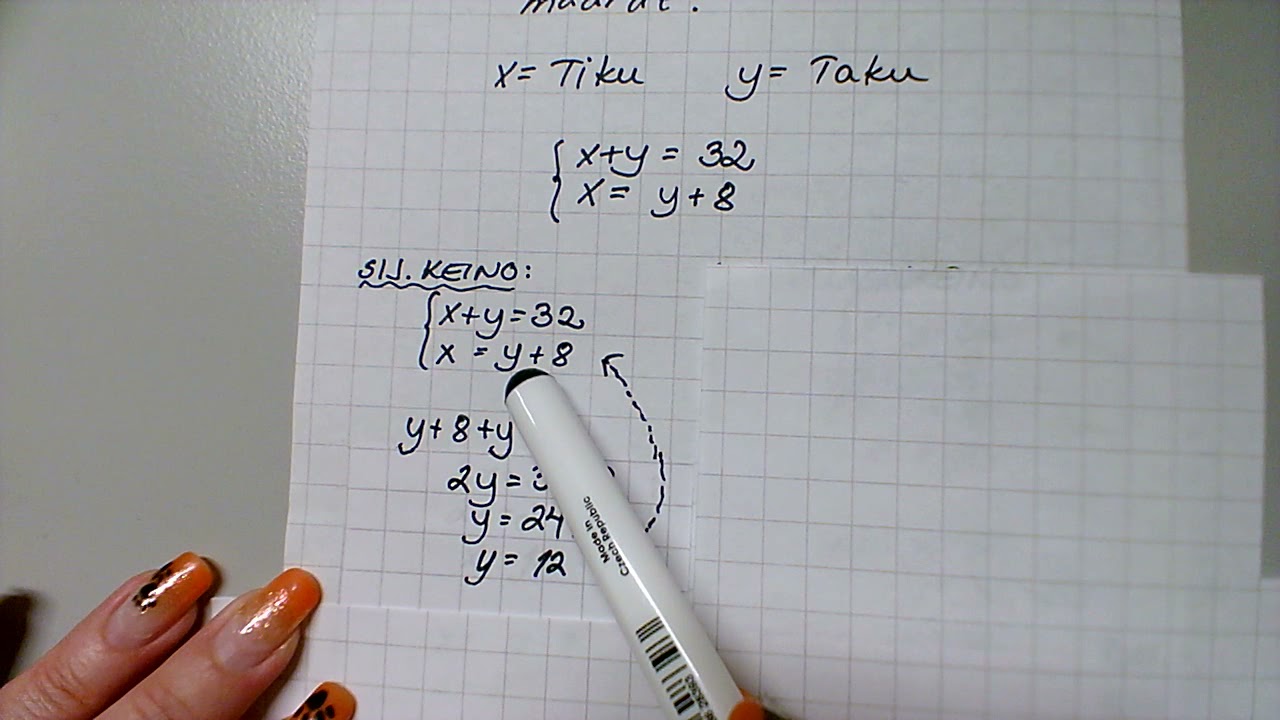 x = Tiku y = Taku
x+y = 32
x = y+8
SIJ. KEINO:
x+y=32
x = y+8
y+8+y
2y = 3
y = 24
y = 12
Made in
Czech Republic